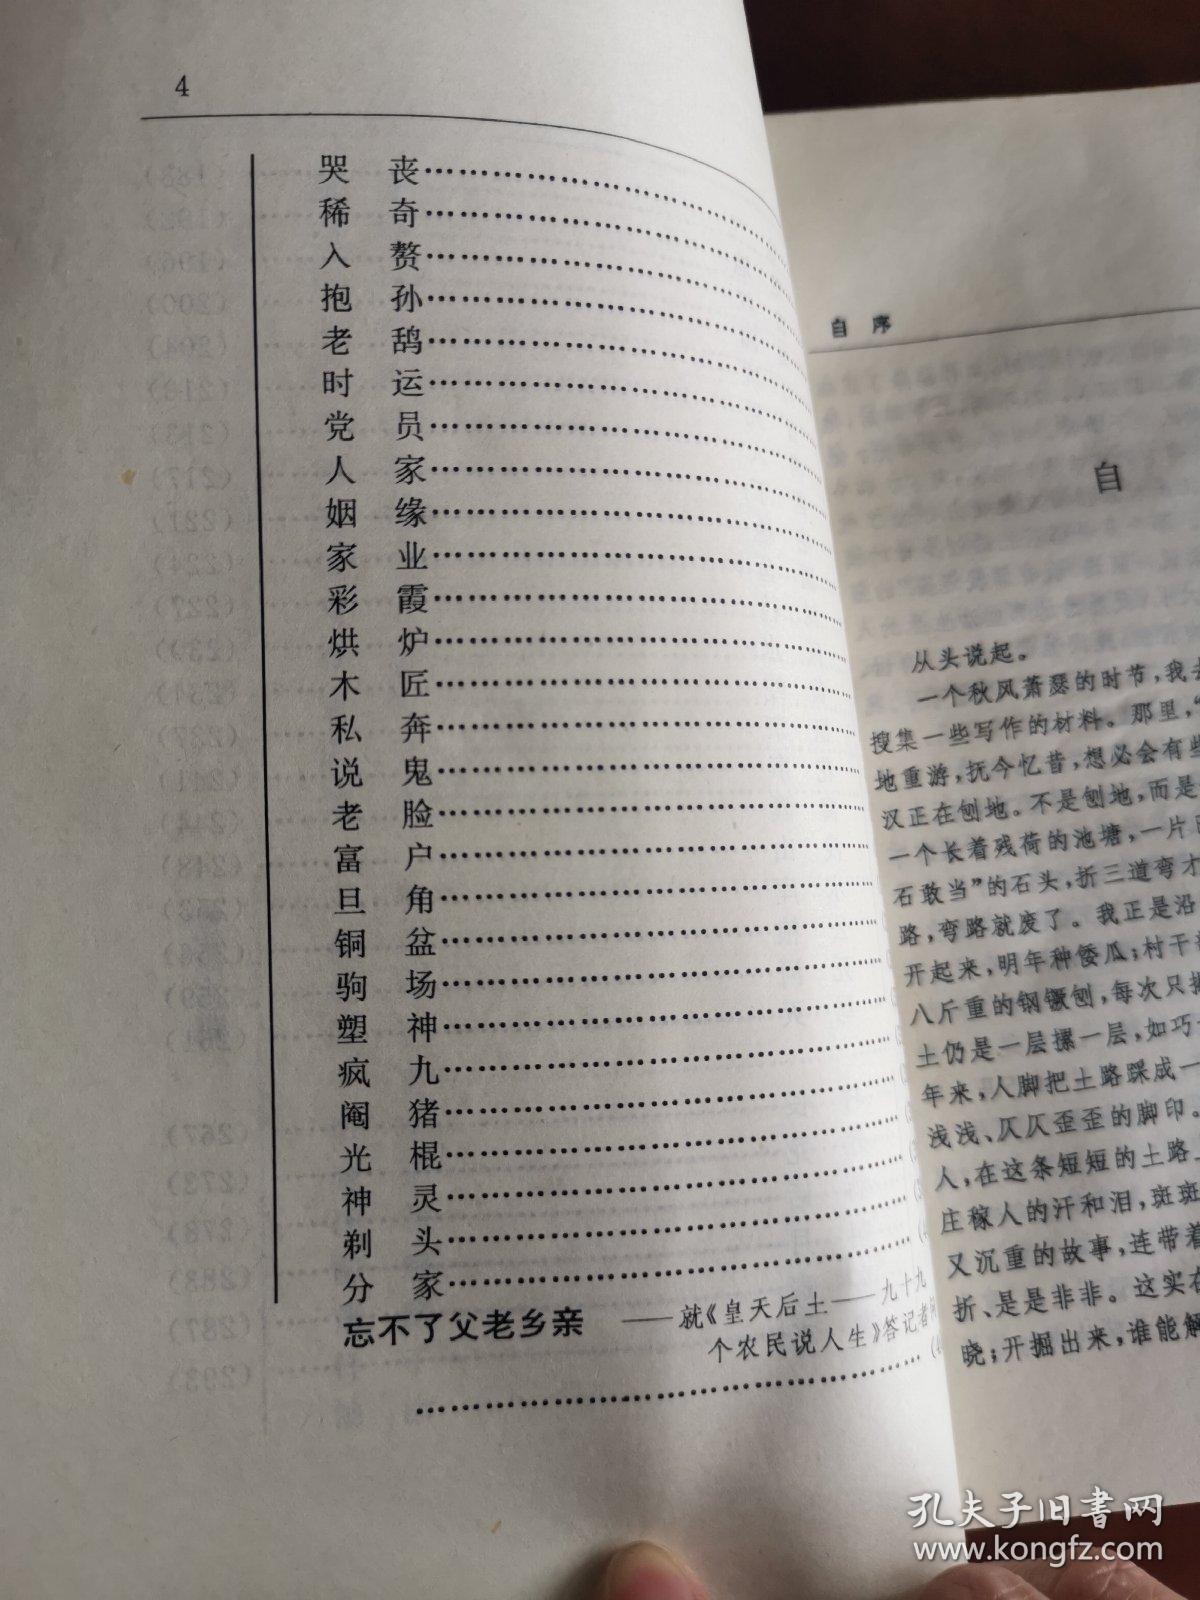 4
哭 丧
稀 奇
入 赘
抱 孙
老 鸹
时 运
党 员
人 家
姻 缘
家 业
彩 霞
烘 炉
木 匠
私 奔
说 鬼
老 脸
富 户
旦 角
铜 盆
驹 场
塑 神
疯 九
阉 猪
光 棍
神 灵
剃 头
分 家
忘不了父老乡亲 ——就《皇天后土——九十九
个农民说人生》答记者
自 序
自
从头说起。
一个秋风萧瑟的时节,我去
搜集一些写作的材料。那里,“
地重游,抚今忆昔,想必会有些
汉正在刨地。不是刨地,而是
一个长着残荷的池塘,一片
石敢当”的石头,折三道弯才
路,弯路就废了。我正是沿
开起来,明年种倭瓜;村干
八斤重的钢镢刨,每次只
土仍是一层摞一层,如巧
年来,人脚把土路踩成一
浅浅、仄仄歪歪的脚印。
人,在这条短短的土路
庄稼人的汗和泪,斑斑
又沉重的故事,连带着
折、是是非非。这实在
晓;开掘出来,谁能解
孔夫子旧书网
www.kongfz.com